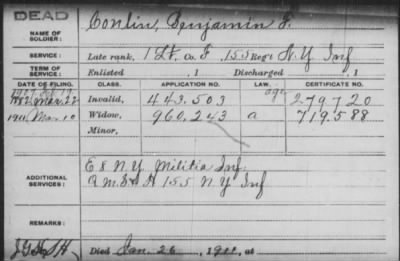 DEAD
NAME OF SOLDIER: Conlin, Benjamin F.
SERVICE: Late rank, 1 Lt. Co. F, 155 Reg't N.Y. Inf
TERM OF SERVICE: Enlisted , 1 Discharged , 1
DATE OF FILING. CLASS. APPLICATION NO. LAW. CERTIFICATE NO.
1907 Feb 19 age
1882 Mar. 22 Invalid, 443.503 279720
1911 Mar. 10 Widow, 960.243 a 719.588
Minor,
ADDITIONAL SERVICES: E 8 N.Y. Militia Inf.
155 N Y Inf
REMARKS:
Died Jan. 26, 1911, at